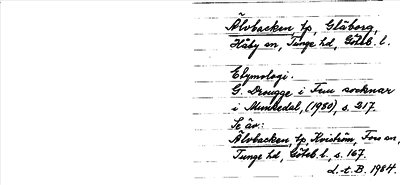 Älvbacken tp, Glaborg,
Håby sn, Tunge hd, Göteb. l.
Etymologi.
G. Drougge i Fem socknar
i Munkedal, (1980), s. 217.
Se äv.:
Älvbacken, tp, Kviström, Foss sn,
Tunge hd, Göteb. l., s. 167.
L.t.B. 1984.